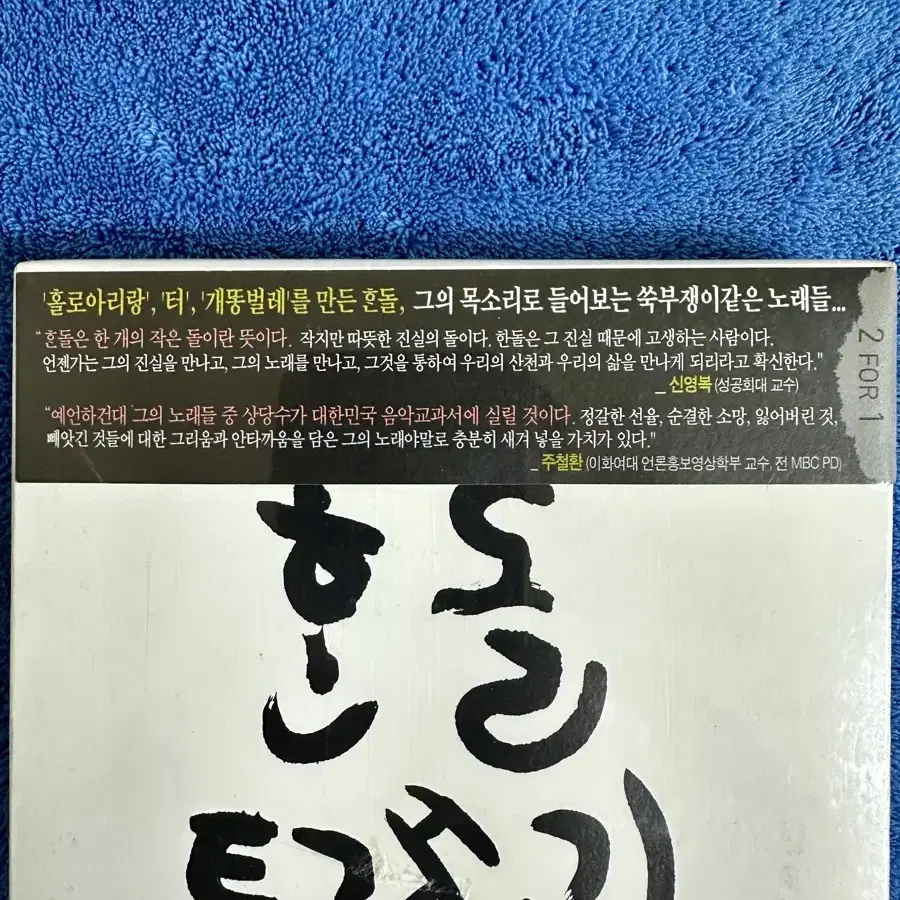 '홀로아리랑', '터', '개똥벌레'를 만든 ᄒᆞᆫ돌, 그의 목소리로 들어보는 쑥부쟁이같은 노래들...
“ᄒᆞᆫ돌은 한 개의 작은 돌이란 뜻이다. 작지만 따뜻한 진실의 돌이다. 한돌은 그 진실 때문에 고생하는 사람이다.
언젠가는 그의 진실을 만나고, 그의 노래를 만나고, 그것을 통하여 우리의 산천과 우리의 삶을 만나게 되리라고 확신한다."
_ 신영복 (성공회대 교수)
“예언하건대 그의 노래들 중 상당수가 대한민국 음악교과서에 실릴 것이다. 정갈한 선율, 순결한 소망, 잃어버린 것,
빼앗긴 것들에 대한 그리움과 안타까움을 담은 그의 노래야말로 충분히 새겨 넣을 가치가 있다."
_ 주철환 (이화여대 언론홍보영상학부 교수, 전 MBC PD)
2 FOR 1
ᄒᆞᆫ돌